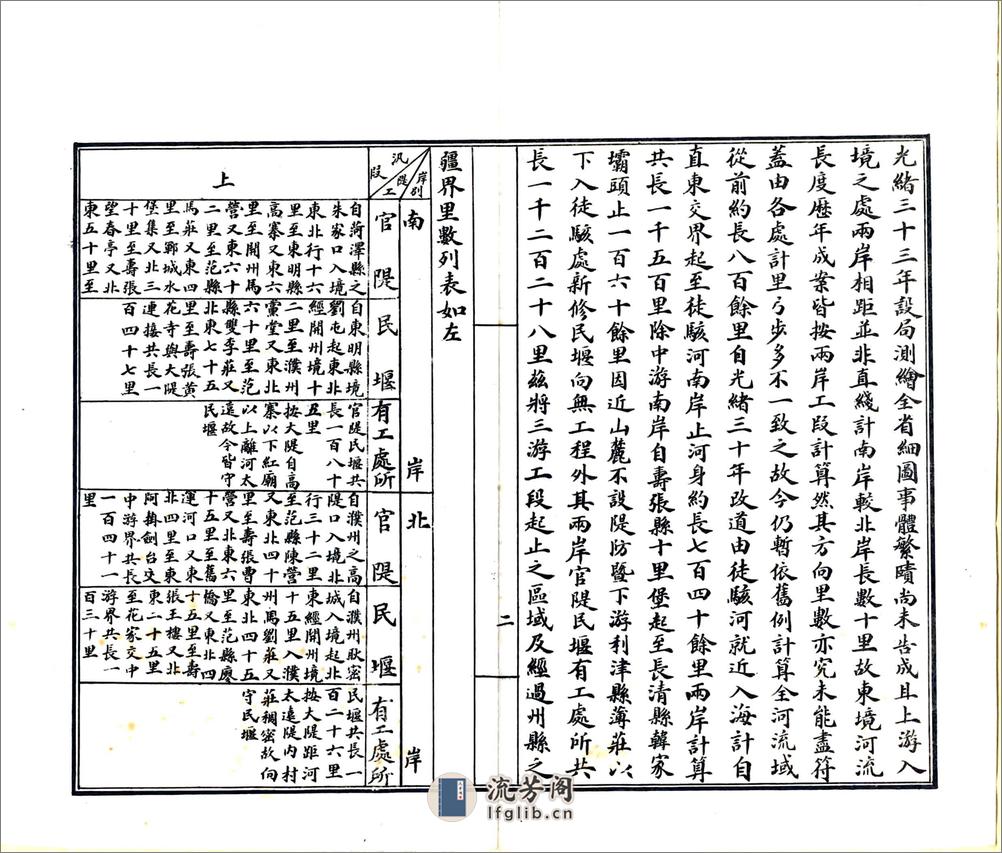 光緒三十三年設局測繪全省細圖事體繁賾尚未告成且上游入
境之處兩岸相距並非直綫計南岸較北岸長數十里故東境河流
長度歷年成案皆按兩岸工段計算然其方向里數亦究未能盡符
蓋由各處計里弓步多不一致之故今仍暫依舊例計算全河流域
從前約長八百餘里自光緒三十年改道由徒駭河就近入海計自
直東交界起至徒駭河南岸止河身約長七百四十餘里兩岸計算
共長一千五百里除中游南岸自壽張縣十里堡起至長清縣韓家
壩頭止一百六十餘里因近山麓不設隄防暨下游利津縣薄莊以
下入徒駭處新修民堰向無工程外其兩岸官隄民堰有工處所共
長一千二百二十八里茲將三游工段起止之區域及經過州縣之
二
疆界里數列表如左
岸別
隄工
汛段
南岸
北岸
官隄
民堰
有工處所
官隄
民堰
有工處所
上
自菏澤縣之
朱家口入境
東北行十六
里至東明縣
高寨又東六
里至開州馬
營又東六十
二里至范縣
馬莊又東四
里至鄆城水
堡集又北三
十里至壽張
望春亭又北
東五十里至
自東明縣境
劉屯起東北
經開州境十
二里至濮州
黨堂又東北
六十里至范
縣雙李莊又
北東七十五
里至壽張黃
花寺與大隄
連接共長一
百四十七里
官隄民堰共
長一百八十
五里
按大隄自高
寨以下紅廟
以上離河太
遠故今皆守
民堰
自濮州之高
隄口入境北
行三十二里
至范縣陳營
又東北四十
里至壽張曹
營又北東六
十五里至舊
運河口又東
北四里至東
阿掛劍台交
中游界共長
一百四十一
里
自濮州耿密
城入境起北
東經開州境
十五里入濮
州馬劉莊又
東北四十五
里至范縣廖
橋又東北四
十五里至壽
張王樓又北
東二十五里
至花家交中
游界共長一
百三十里
民堰共長一
百二十六里
按大隄距河
太遠隄內村
莊稠密故向
守民堰
流芳阁
lfglib.cn